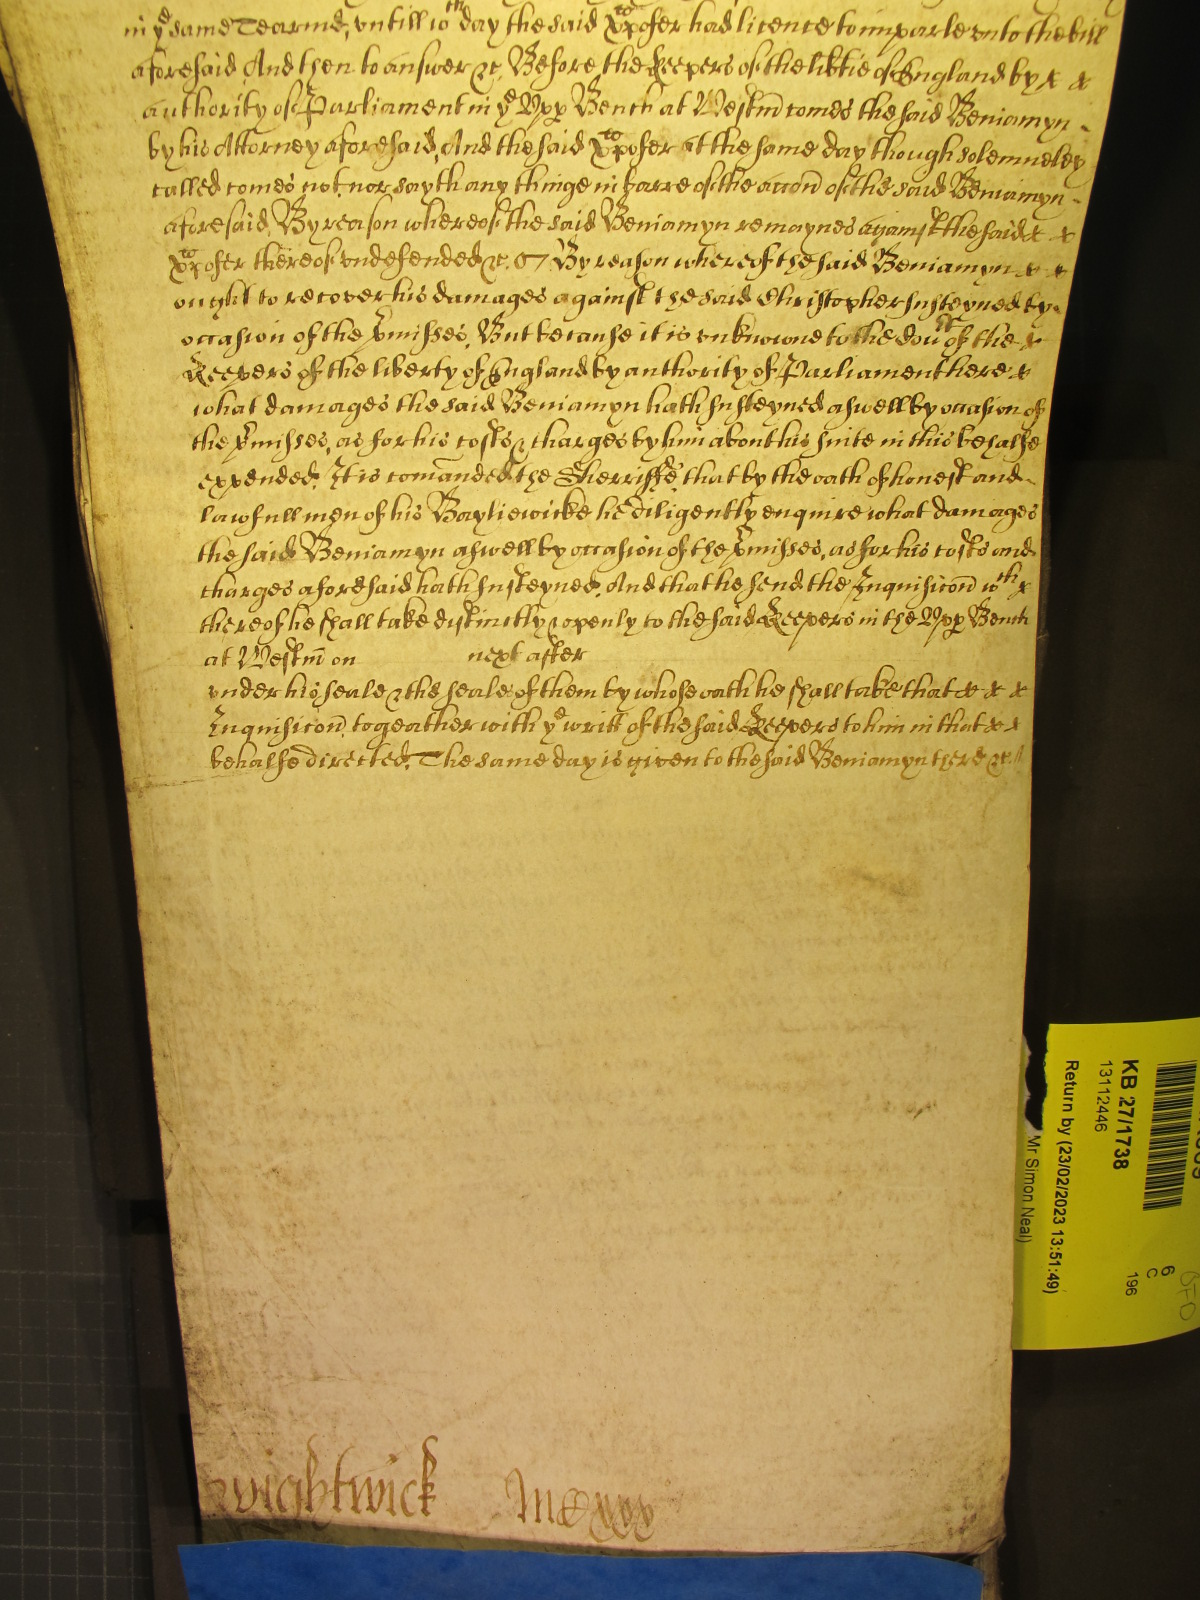 in ye same Tearme, untill wth day the said Xpofer had licence to imparle unto the bill
aforesaid And then to answer &c, Before the Keepers of the libtie of England by x x
authority of Parliament in ye Upp Bench at Westm comes the said Beniamyn
by his Attorney aforesaid, And the said Xpofer at the same day though solemneley
called comes not nor sayth any thinge in barre of the accon of the said Beniamyn
aforesaid, By reason whereof the said Beniamyn remaynes against the said x x
Xpofer thereof undefended &c. By reason whereof the said Beniamyn x x
ought to recover his damages against the said Christopher susteyned by
occasion of the pmisses, But because it is unknowne to the Court of the x
Keepers of the liberty of England by authority of Parliament here x
what damages the said Beniamyn hath susteyned aswell by occasion of
the pmisses, as for his costs & charges by him about his suite in this behalfe
expended, It is comanded the Sherriffe that by the oath of honest and
lawfull men of his Bayliewicke he diligently enquire what damages
the said Beniamyn aswell by occasion of the pmisses, as for his costs and
charges aforesaid hath susteyned, And that he send the Inquisicon wth x
thereof he shall take distinctly & openly to the said Keepers in the Upp Bench
at Westm on next after
under his seale & the seales of them by whose oath he shall take that x x x
Inquisicon, togeather with ye writt of the said Keepers to him in that x x
behalfe directed, The same day is given to the said Beniamyn there &c
Wightwick Mcxxx
KB 27/1738
13112446
Return by (23/02/2023 13:51:49)
Mr Simon Neal)
6
C
196